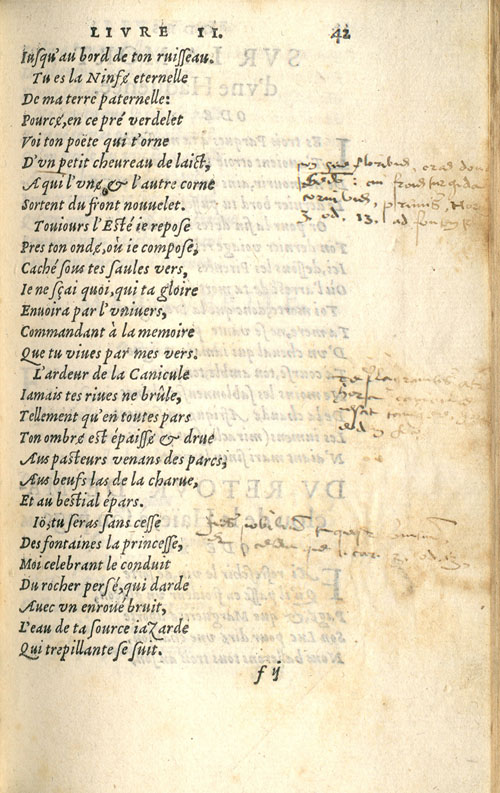 LIVRE II. 42
Iusqu'au bord de ton ruisseau.
Tu es la Ninfé eternelle
De ma terre paternelle:
Pource, en ce pré verdelet
Voi ton poëte qui t'orne
D'vn petit cheureau de laict,
A qui l'vné, & l'autre corne
Sortent du front nouuelet.
Tousiours l'Esté ie repose
Pres ton ondé, où ie compose,
Caché sous tes saules vers,
Ie ne sçai quoi, qui ta gloire
Enuoira par l'vniuers,
Commandant à la memoire
Que tu viues par mes vers.
L'ardeur de la Canicule
Iamais tes riues ne brûle,
Tellement qu'en toutes pars
Ton ombré est épaissé & drue
Aus pasteurs venans des parcs,
Aus beufs las de la charue,
Et au bestial épars.
Iô, tu seras sans cesse
Des fontaines la princesse,
Moi celebrant le conduit
Du rocher persé, qui darde
Auec vn enroué bruit,
L'eau de ta source iazarde
Qui trepillante se suit.
f ij
non sine floribus, cras don
frons turgida
cornibus, primis, Hor
3 od. 13. ad fontem